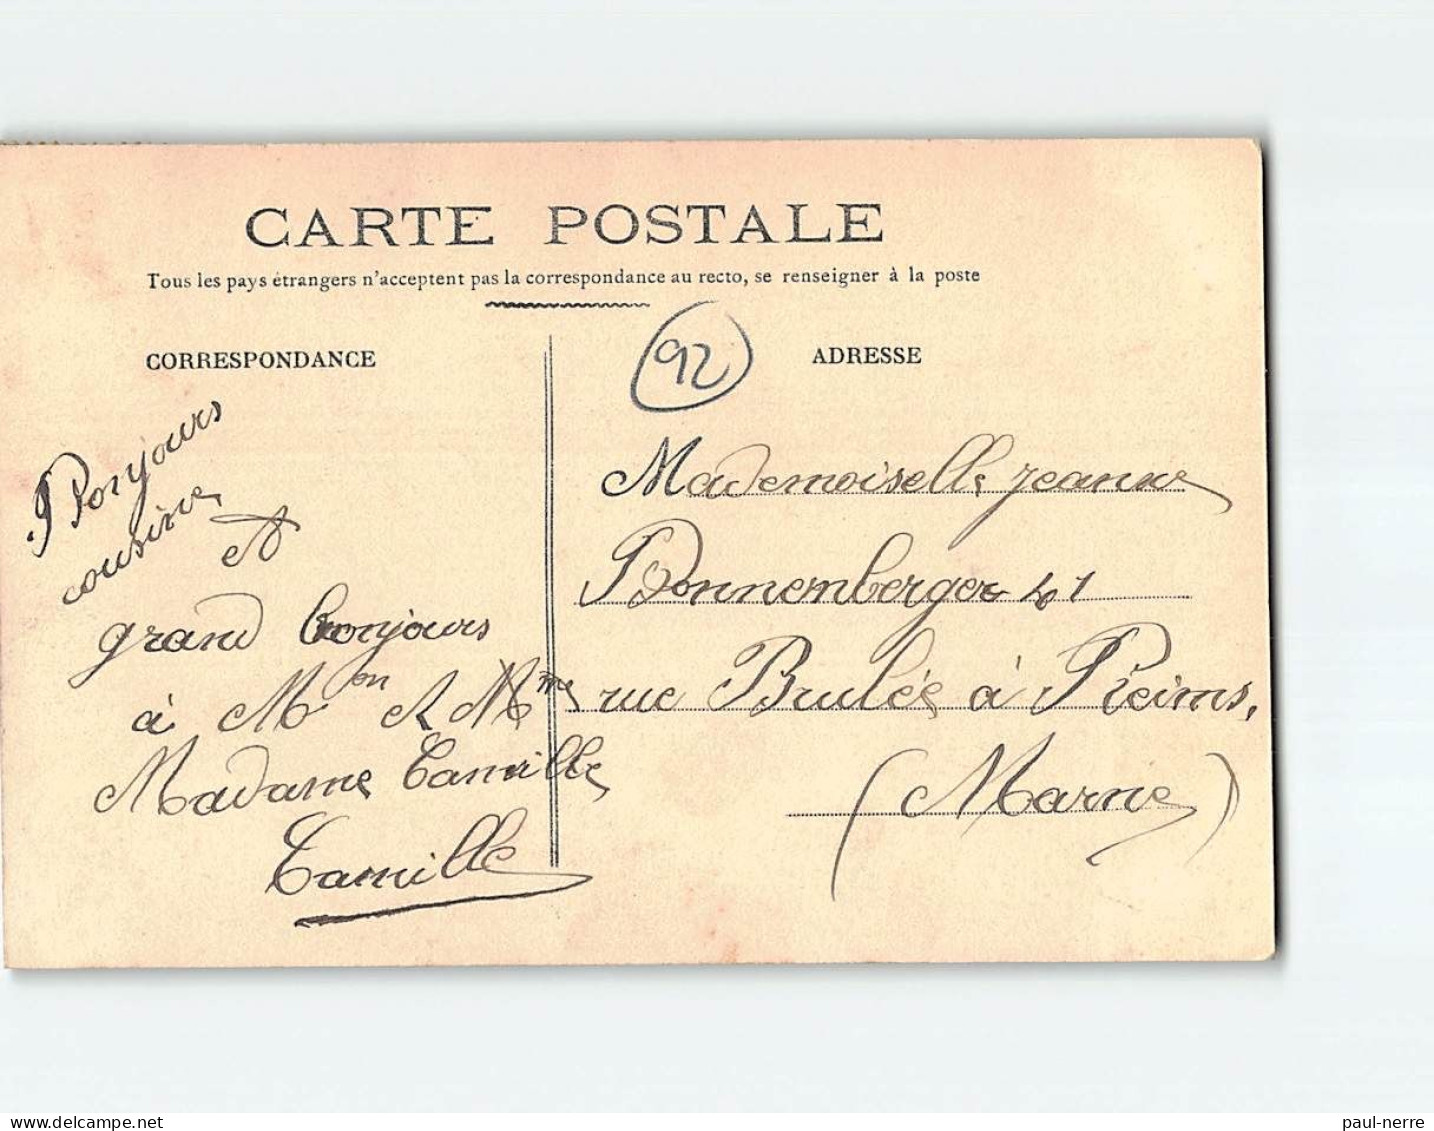 CARTE POSTALE
Tous les pays étrangers n'acceptent pas la correspondance au recto, se renseigner à la poste
CORRESPONDANCE
Bonjours
cousine
A
grand bonjours
à Mon & Mme
Madame Camille
Camille
92
ADRESSE
Mademoiselle Jeanne
Bonnemberger 41
rue Brulée à Reims,
(Marne)
paul-nerre